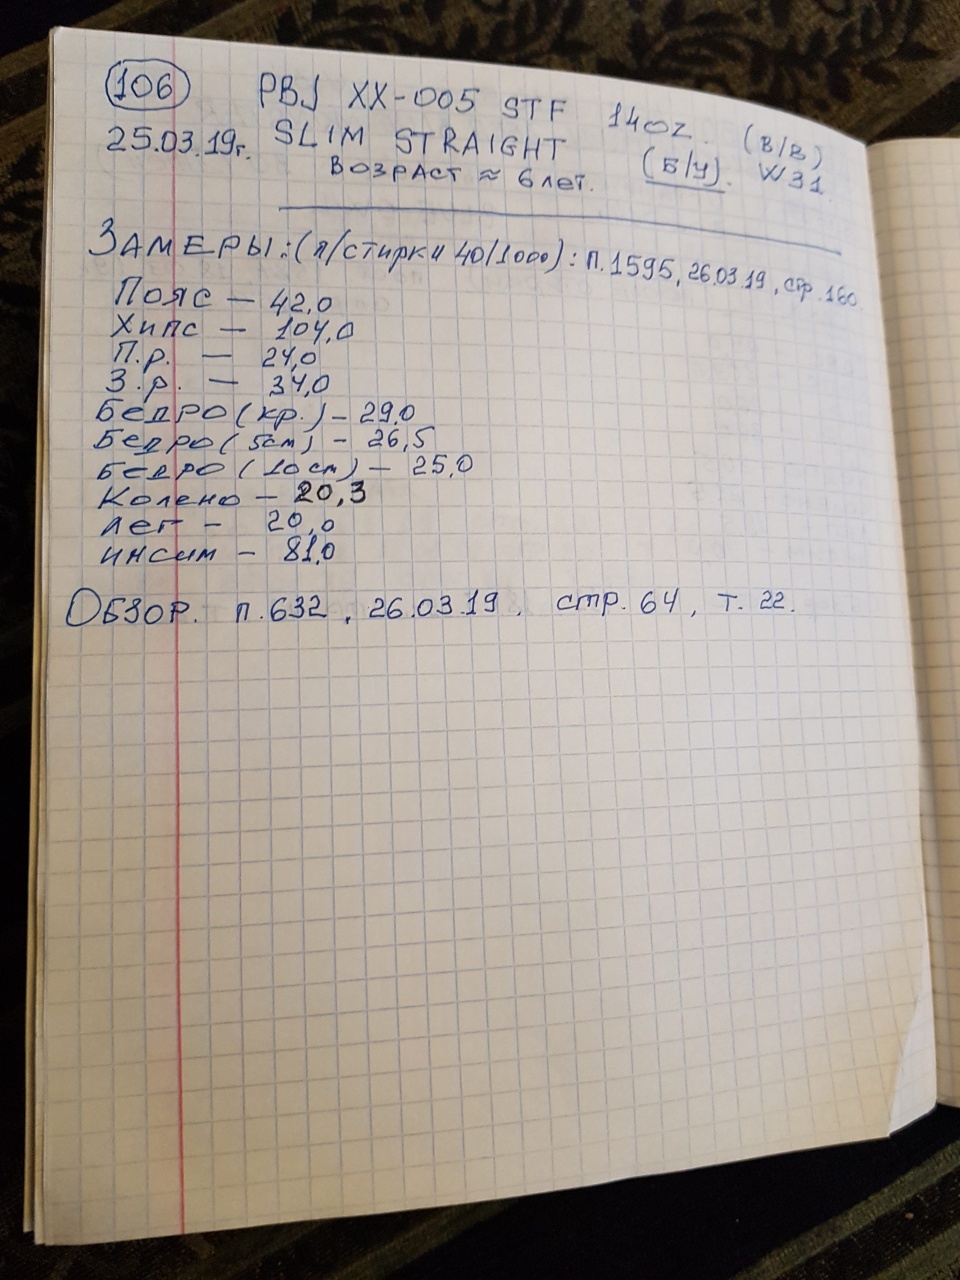 106 PBJ XX-005 STF 14oz. (В/В)
25.03.19г. SLIM STRAIGHT (Б/У). W31
Возраст ≈ 6 лет.
Замеры: (п/стирки 40/1000): п.1595, 26.03.19, стр.160.
Пояс – 42,0
Хипс – 104,0
П.р. – 24,0
З.р. – 34,0
Бедро (кр.) – 29,0
Бедро (5см) – 26,5
Бедро (10см) – 25,0
Колено – 20,3
Лег – 20,0
инсим – 81,0
Обзор. п.632, 26.03.19, стр. 64, т. 22.